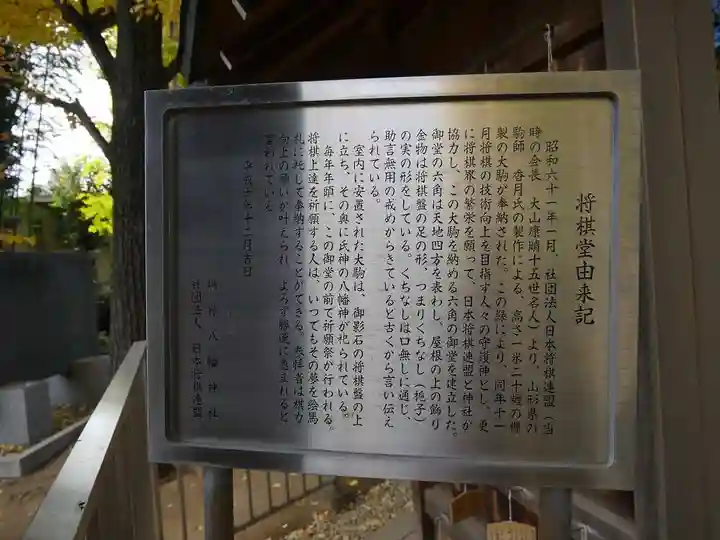 将棋堂由来記
昭和六十一年一月、社団法人日本将棋連盟（当
時の会長 大山康晴十五世名人）より、山形県の
駒師 香月氏の製作による、高さ一米二十糎の欅
製の大駒が奉納された。この縁により、同年十一
月将棋の技術向上を目指す人々の守護神とし、更
に将棋界の繁栄を願って、日本将棋連盟と神社が
協力し、この大駒を納める六角の御堂を建立した。
御堂の六角は天地四方を表わし、屋根の上の飾り
金物は将棋盤の足の形、つまりくちなし（梔子）
の実の形をしている。くちなしは口無しに通じ、
助言無用の戒めからきていると古くから言い伝え
られている。
室内に安置された大駒は、御影石の将棋盤の上
に立ち、その奥に氏神の八幡神が祀られている。
毎年年頭に、この御堂の前で祈願祭が行われる。
将棋上達を祈願する人は、いつでもその夢を絵馬
札に托して奉納することができる。参拝者は棋力
向上の願いが叶えられ、よろず勝運に恵まれると
言われている
平成 年十二月吉日
鳩森八幡神社
社団法人 日本将棋連盟